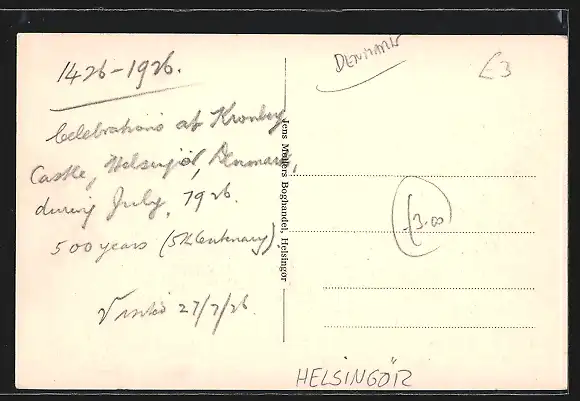 1426-1926.
Celebrations at Kronborg
Castle, Helsingör, Denmark,
during July, 1926.
500 years (5th Centenary).
Visited 27/7/26.
Jens Møllers Boghandel, Helsingor
DENMARK
£3
£3.00
HELSINGÖR